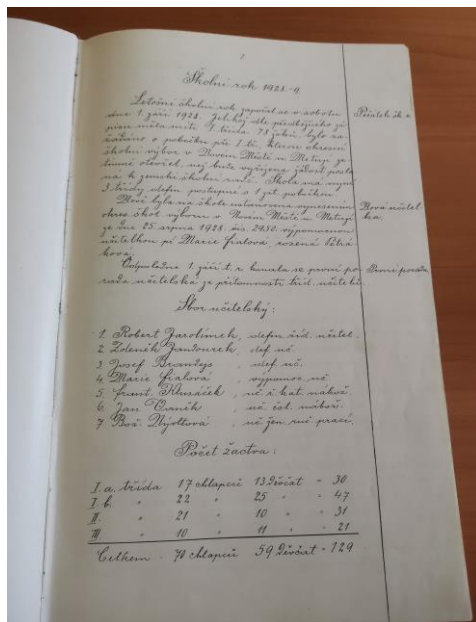 Školní rok 1928-9.
Letošní školní rok započal se v sobotu
dne 1. září 1928. Jelikož dle předběžného zá-
pisu měla míti I. třída 78 žáků, bylo za-
žádáno o pobočku při I. tř., kterou okresní
školní výbor v Novém Městě n. Metují za-
tímně otevřel, než bude vyřízena žádost posla-
ná k zemské školní radě. Škola má nyní
3 třídy defin. postupné a 1 zat. pobočku.
Nově byla na škole ustanovena vynesením
okres. škol. výboru v Novém Městě n. Metují
ze dne 25. srpna 1928. čís. 2430. výpomocnou
učitelkou pí Marie Fialová, rozená Petrá-
ková.
Odpoledne 1. září t. r. konala se první po-
rada učitelská za přítomnosti
Počátek šk. r.
Nová učitel-
ka.
První porada.
Sbor učitelský:
1. Robert Jarolímek, defin. říd. učitel.
2. Zdeněk Jandourek, def. uč.
3. Josef Brandejs, def. uč.
4. Marie Fialová, výpomoc. uč.
5. Frant. Klusáček, uč. ř. kat. nábož.
6. Jan, uč. čsl. nábož.
7. Bož. Nývltová, uč. žen. ruč. prací.
Počet žactva:
I. a. třída 17 chlapců 13 děvčat = 30
I. b. " 22 " 25 " = 47
II. " 21 " 10 " = 31
III. " 10 " 11 " = 21
Celkem - 70 chlapců 59 děvčat = 129.